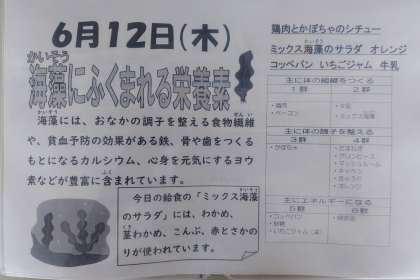 6月12日(木)
かいそう
海藻にふくまれる栄養素
かいそう せんい
海藻には、おなかの調子を整える食物繊維
や、貧血予防の効果がある鉄、骨や歯をつくる
もとになるカルシウム、心身を元気にするヨウ
ふく
素などが豊富に含まれています。
かいそう
今日の給食の「ミックス海藻
のサラダ」には、わかめ、
茎わかめ、こんぶ、赤とさかの
りが使われています。
鶏肉とかぼちゃのシチュー
かいそう
ミックス海藻のサラダ オレンジ
コッペパン いちごジャム 牛乳
主に体の組織をつくる
1群 2群
・鶏肉 ・牛乳
・ベーコン ・ミックス海藻
主に体の調子を整える
3群 4群
・かぼちゃ ・たまねぎ
・グリンピース
・マッシュルーム
・コーン
・キャベツ
・きゅうり
・オレンジ
主にエネルギーになる
5群 6群
・コッペパン
・砂糖
・いちごジャム